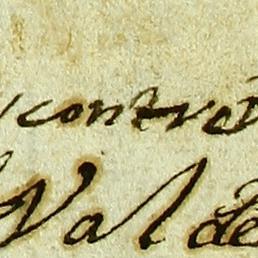 contro
Val de